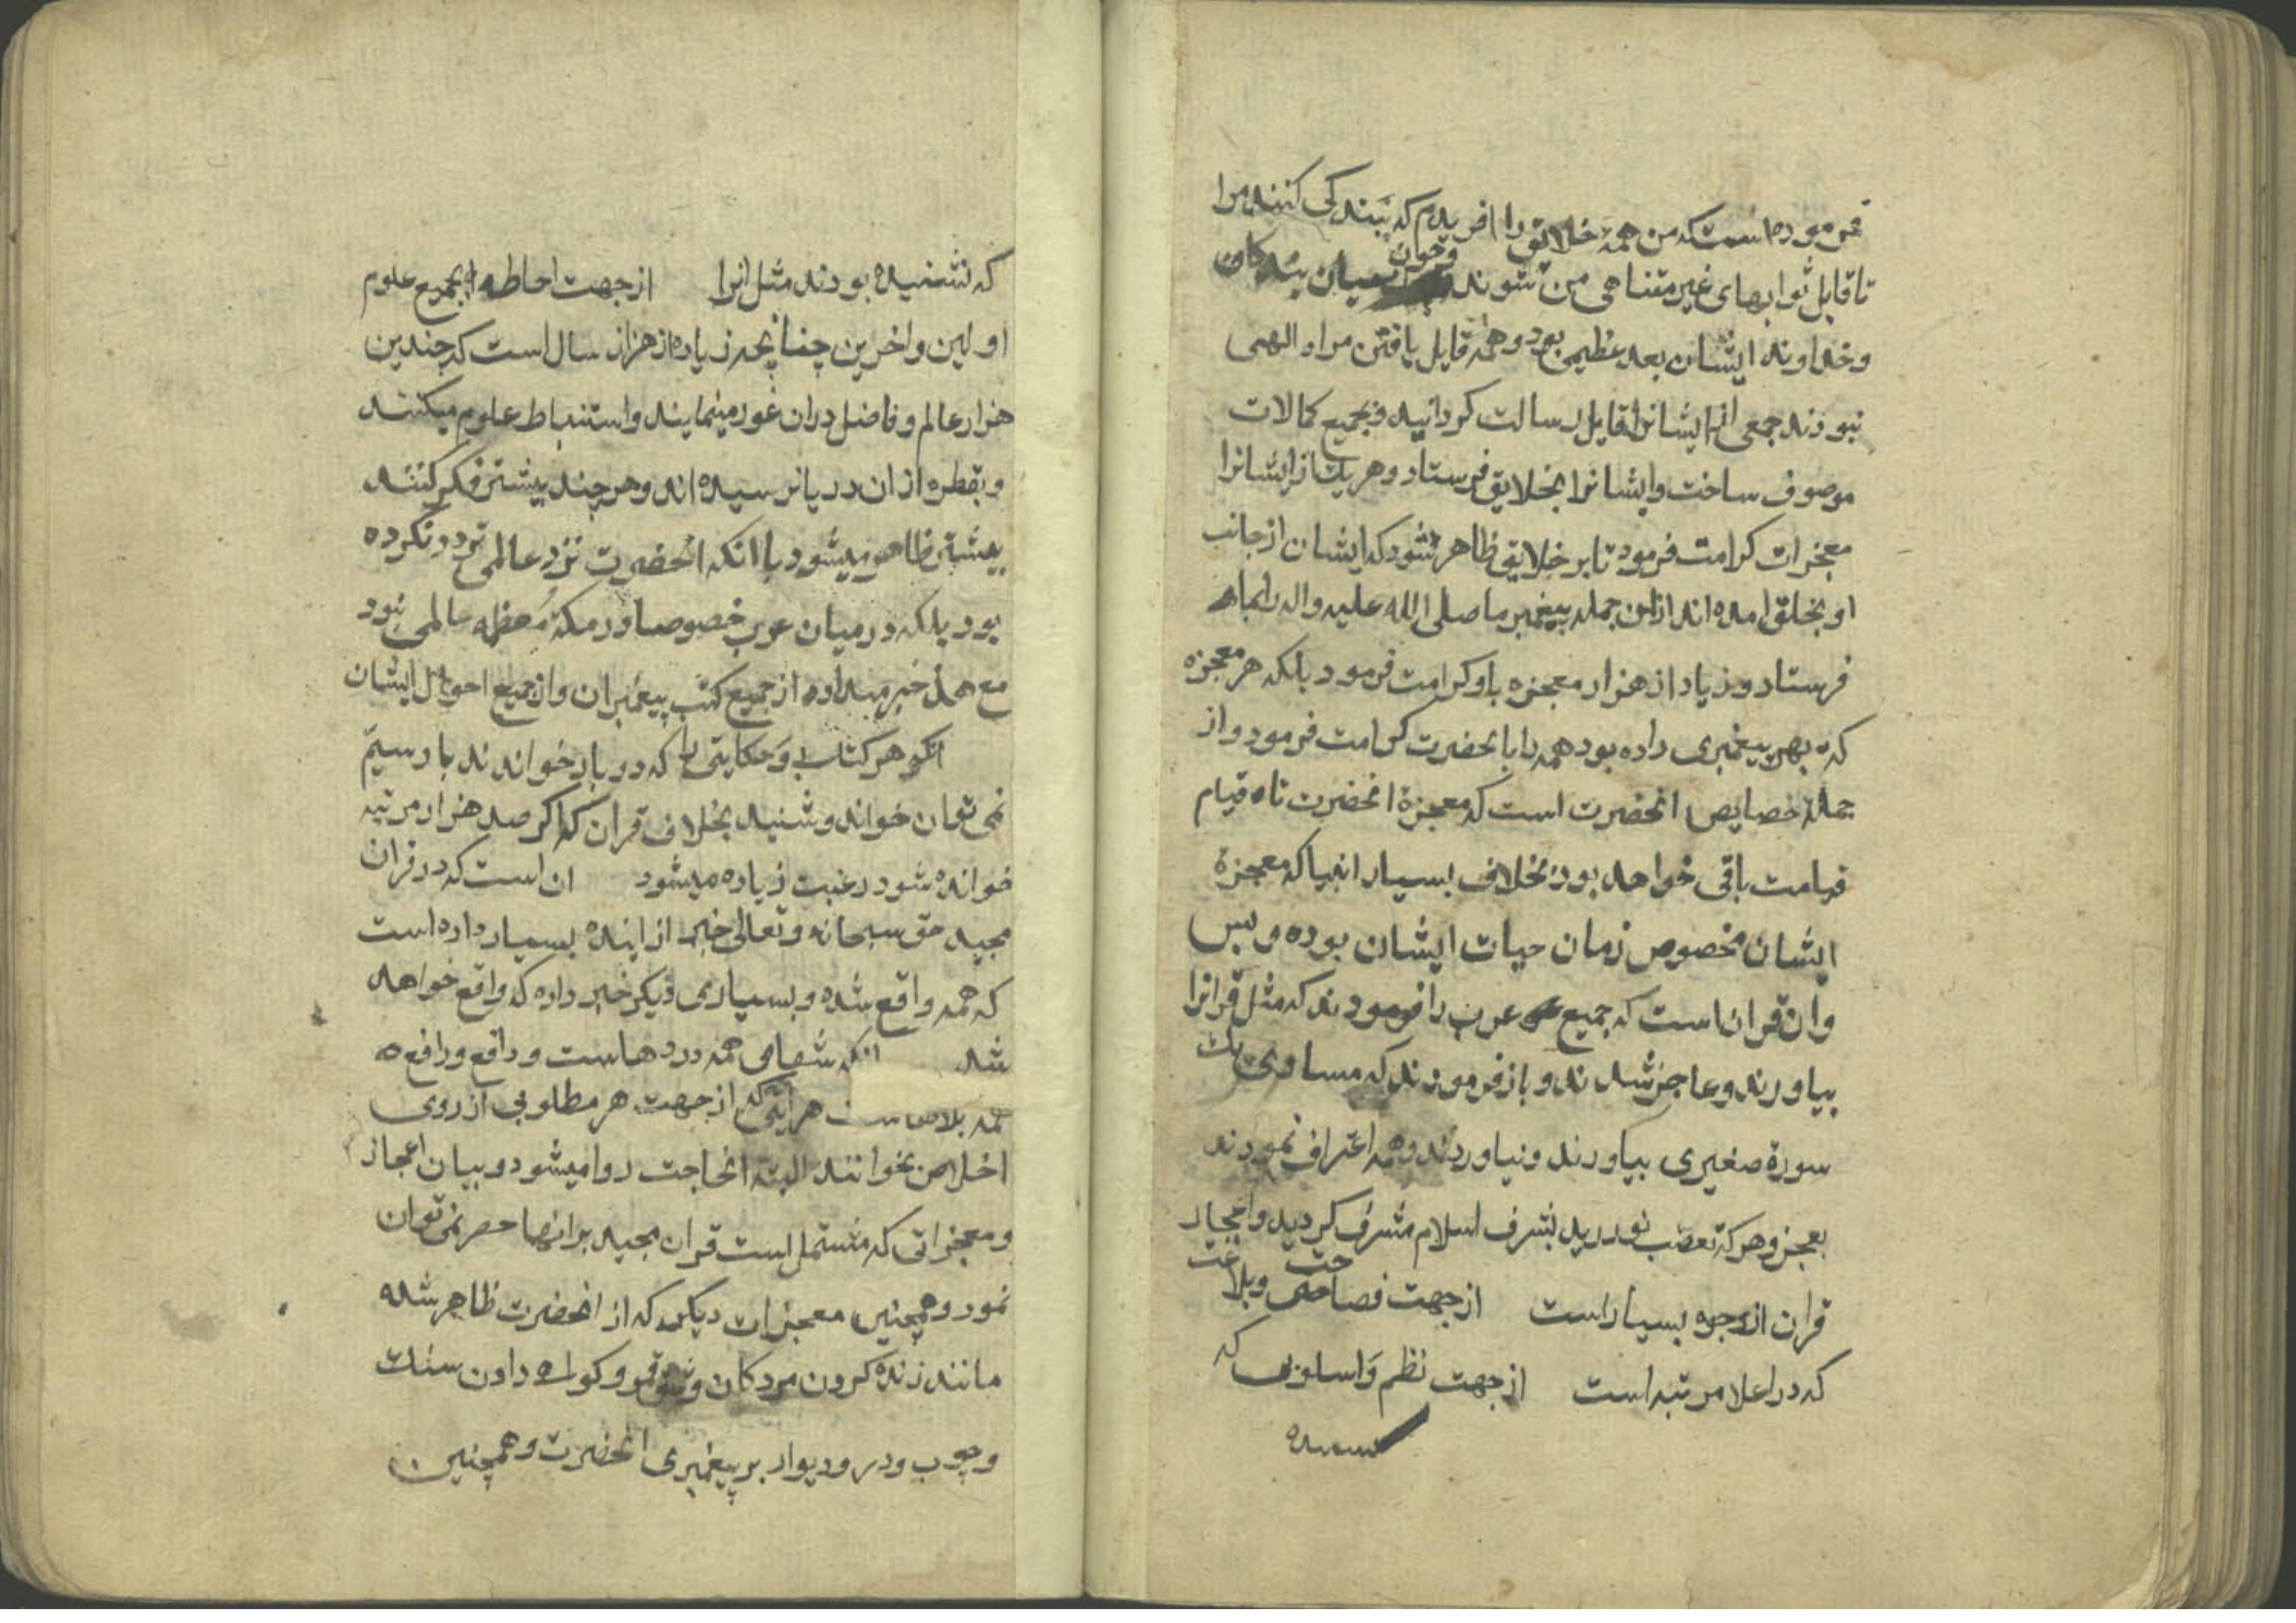 فرموده است که من همهٔ خلایق را افریدم که بندکی کنند مرا
تا قابل ثوابهای غیر متناهی من شوند و چون میان بندکان
و خداوند ایشان بعد عظیمی بود و همه قابل یافتن مراد الهی
نبودند جمعی از ایشانرا قابل رسالت کردانید و بجمیع کمالات
موصوف ساخت و ایشانرا بخلایق فرستاد و هر یک از ایشانرا
معجزات کرامت فرمود تا بر خلایق ظاهر شود که ایشان از جانب
او بخلق امده اند از این جمله پیغمبر ما صلی الله علیه واله را بما
فرستاد و زیاد از هزار معجزه باو کرامت فرمود بلکه هر معجزه
که بهر پیغمبری داده بود همه را بانحضرت کرامت فرمود و از
جملهٔ خصایص انحضرت است که معجزهٔ انحضرت تا قیام
قیامت باقی خواهد بود بخلاف بسیار انبیا که معجزهٔ
ایشان مخصوص زمان حیات ایشان بوده و بس
وان قران است که جمیع عرب را فرمودند که مثل قرانرا
بیاورند و عاجز شدند و باز فرمودند که مساوی یک
سورهٔ صغیری بیاورند و نیاوردند و همه اعتراف نمودند
بعجز و هر که تعصب نورزید بشرف اسلام مشرف کردید و اعجاز
قران از وجوه بسیار است از جهت فصاحت و بلاغت
که در اعلا مرتبه است از جهت نظم و اسلوبی که
که نشنیده بودند مثل انرا از جهت احاطه بجمیع علوم
اولین و اخرین چنانچه زیاده از هزار سال است که چندین
هزار عالم و فاضل دران غور مینمایند و استنباط علوم میکنند
و بقطره از ان دریا نرسیده اند و هر چند بیشتر فکر کنند
بیشتر ظاهر میشود با انکه انحضرت نزد عالمی تردد نکرده
بود بلکه در میان عرب خصوصا در مکهٔ معظمه عالمی نبود
مع هذا خبر میداده از جمیع کتب پیغمبران و از جمیع احوال ایشان
انکه هر کتاب و حکایتی را که دو بار خواندند بار سیم
نمی توان خواند و شنید بخلاف قران که اکر صد هزار مرتبه
خوانده شود رغبت زیاده میشود ان است که در قران
مجید حق سبحانه و تعالی خبر از اینده بسیار داده است
که همه واقع شده و بسیاری دیکر خبر داده که واقع خواهد
شد انکه شفای همه دردهاست و دافع و رافع
همه بلاهاست هر ایتی که از جهت هر مطلوبی از روی
اخلاص بخوانند البته انحاجت روا میشود و بیان اعجاز
و معجزاتی که مشتمل است قران مجید بر انها حصر نمی توان
نمود و همچنین معجزات دیکر که از انحضرت ظاهر شده
مانند زنده کردن مردکان و شق قمر و کواه دادن سنک
و چوب و در و دیوار بر پیغمبری انحضرت و همچنین